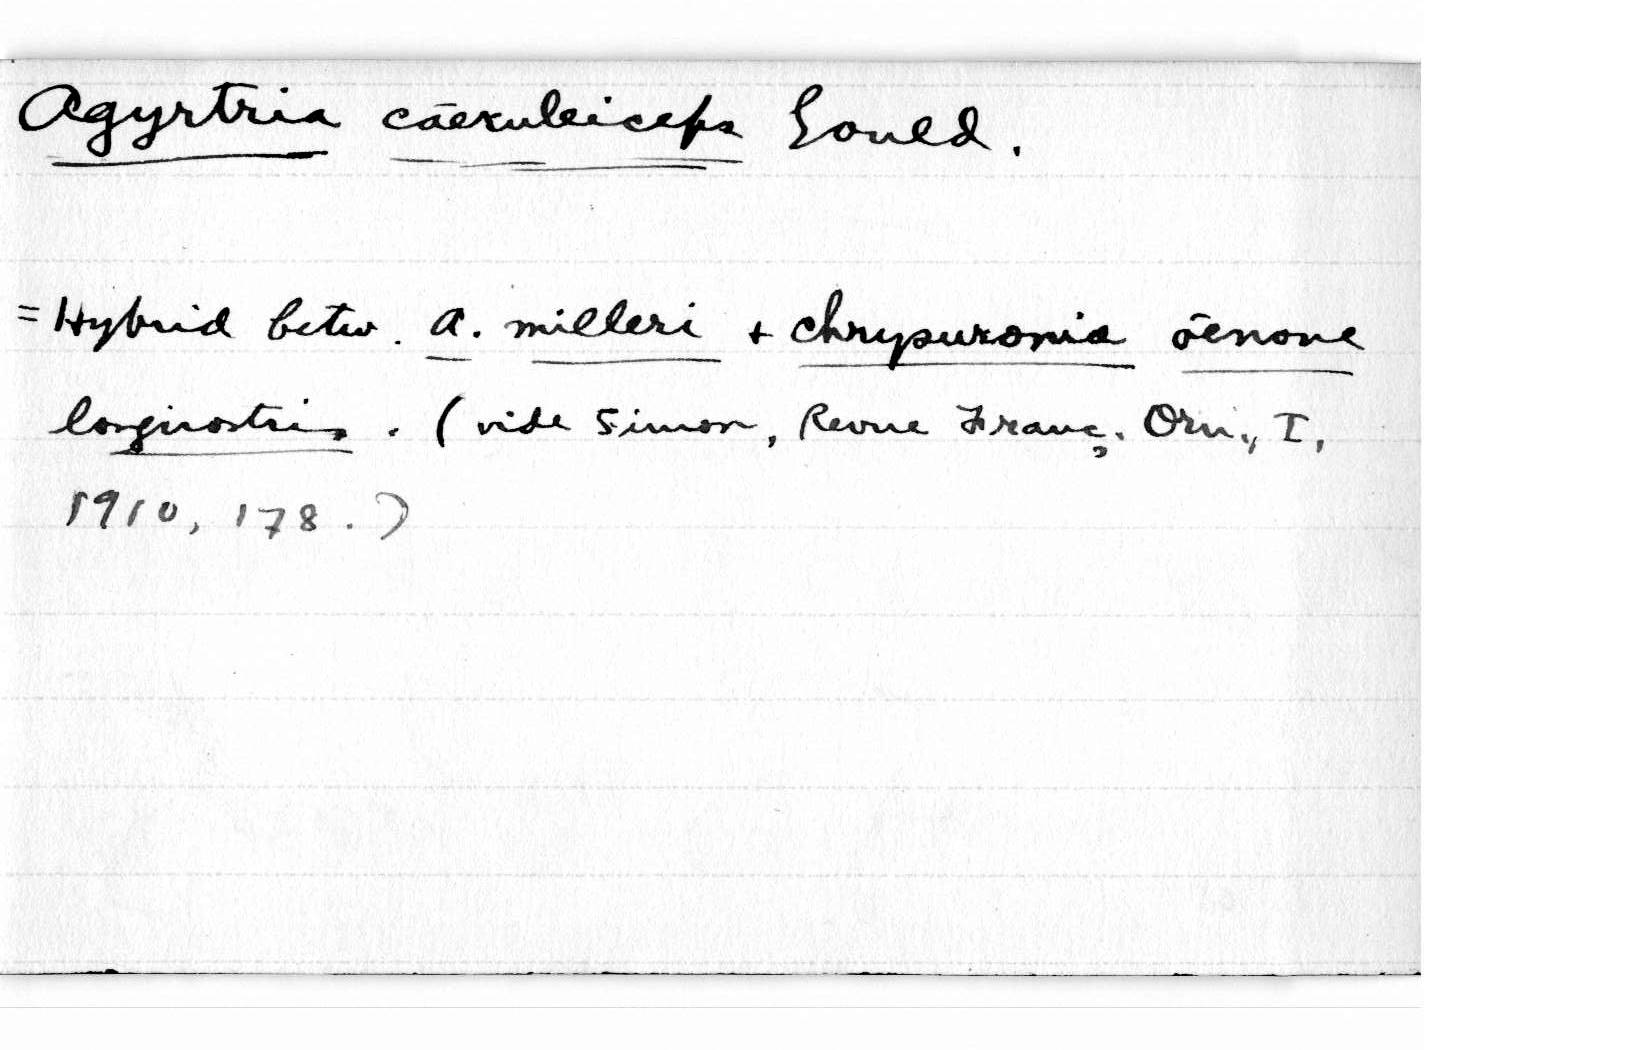 Agyrtria cāeruleiceps Gould.
= Hybrid betw. A. milleri + Chrysuronia ōenone
longirostris. (vide Simon, Revue Franç. Orn., I,
1910, 178.)